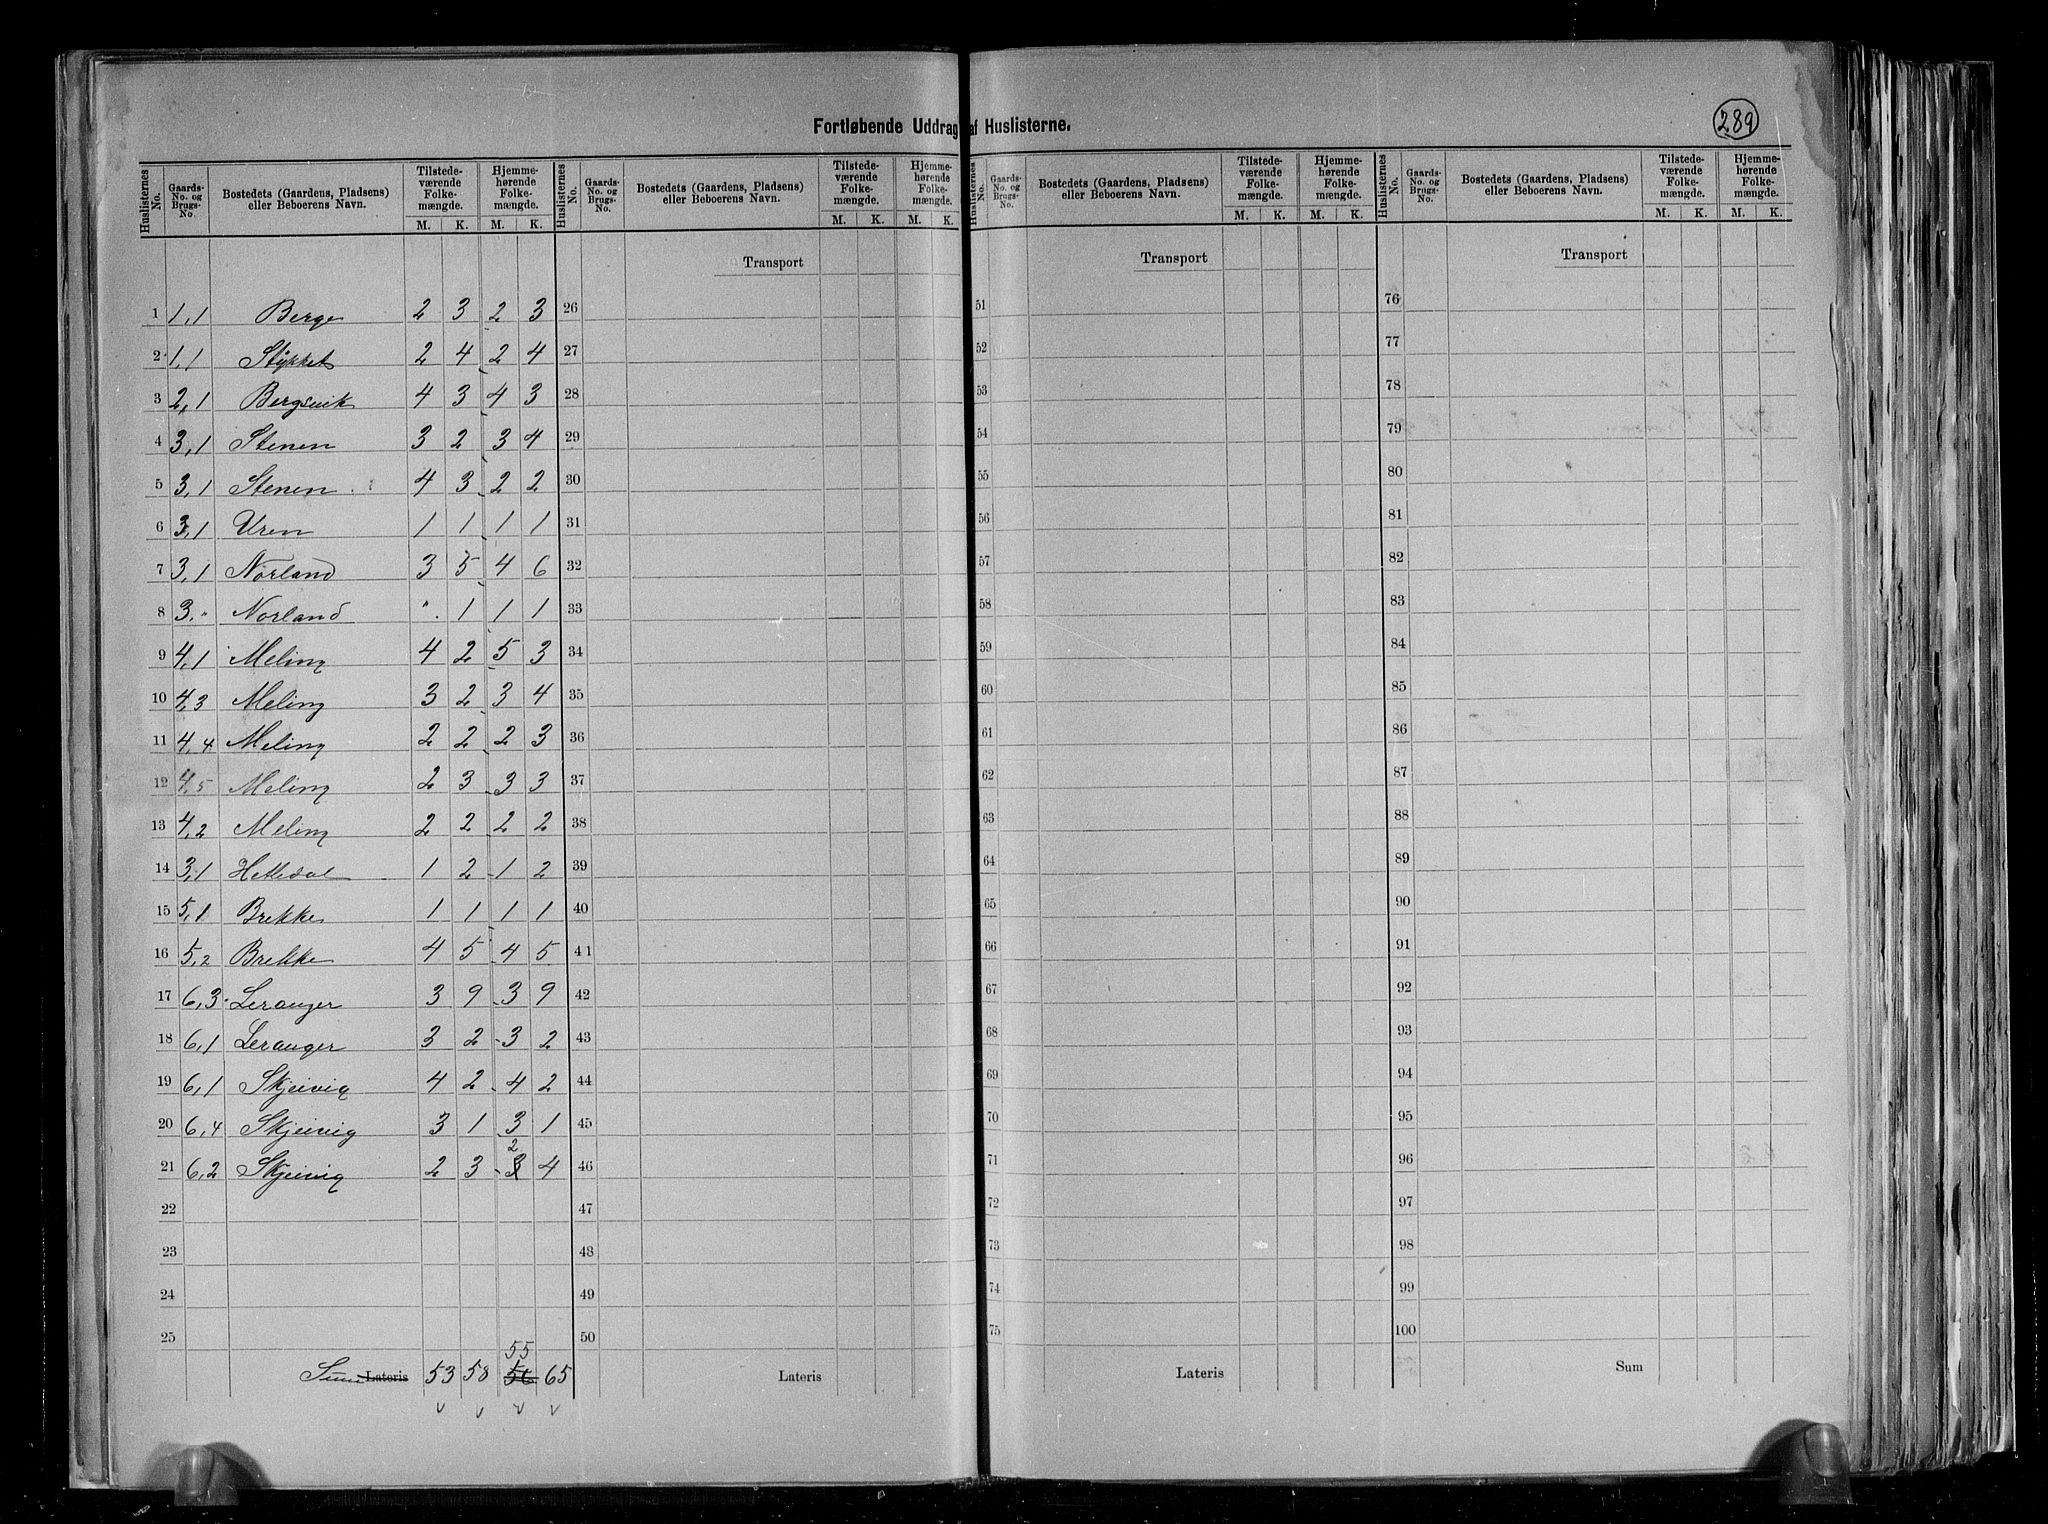 Fortløbende Uddrag af Huslisterne.
289
Huslisternes No. Gaards-No. og Brugs-No. Bostedets (Gaardens, Pladsens) eller Beboerens Navn. Tilstedeværende Folkemængde. M. K. Hjemmehørende Folkemængde. M. K.
Huslisternes No. Gaards-No. og Brugs-No. Bostedets (Gaardens, Pladsens) eller Beboerens Navn. Tilstedeværende Folkemængde. M. K. Hjemmehørende Folkemængde. M. K.
Huslisternes No. Gaards-No. og Brugs-No. Bostedets (Gaardens, Pladsens) eller Beboerens Navn. Tilstedeværende Folkemængde. M. K. Hjemmehørende Folkemængde. M. K.
Huslisternes No. Gaards-No. og Brugs-No. Bostedets (Gaardens, Pladsens) eller Beboerens Navn. Tilstedeværende Folkemængde. M. K. Hjemmehørende Folkemængde. M. K.
Transport Transport Transport
1 1,1 Berge 2 3 2 3 26 51 76
2 1,1 Stykket 2 4 2 4 27 52 77
3 2,1 Bergsvik 4 3 4 3 28 53 78
4 3,1 Stenen 3 2 3 4 29 54 79
5 3,1 Stenen 4 3 2 2 30 55 80
6 3,1 Uren 1 1 1 1 31 56 81
7 3,1 Norland 3 5 4 6 32 57 82
8 3," Norland " 1 1 1 33 58 83
9 4,1 Meling 4 2 5 3 34 59 84
10 4,3 Meling 3 2 3 4 35 60 85
11 4,4 Meling 2 2 2 3 36 61 86
12 4,5 Meling 2 3 3 3 37 62 87
13 4,2 Meling 2 2 2 2 38 63 88
14 3,1 Hettedal 1 2 1 2 39 64 89
15 5,1 Brekke 1 1 1 1 40 65 90
16 5,2 Brekke 4 5 4 5 41 66 91
17 6,3 Leranger 3 9 3 9 42 67 92
18 6,1 Leranger 3 2 3 2 43 68 93
19 6,1 Skjeivig 4 2 4 2 44 69 94
20 6,4 Skjeivig 3 1 3 1 45 70 95
21 6,2 Skjeivig 2 3 3 2 4 46 71 96
22 47 72 97
23 48 73 98
24 49 74 99
25 50 75 100
55
Sum Lateris 53 58 56 65 Lateris Lateris Sum
v v v v